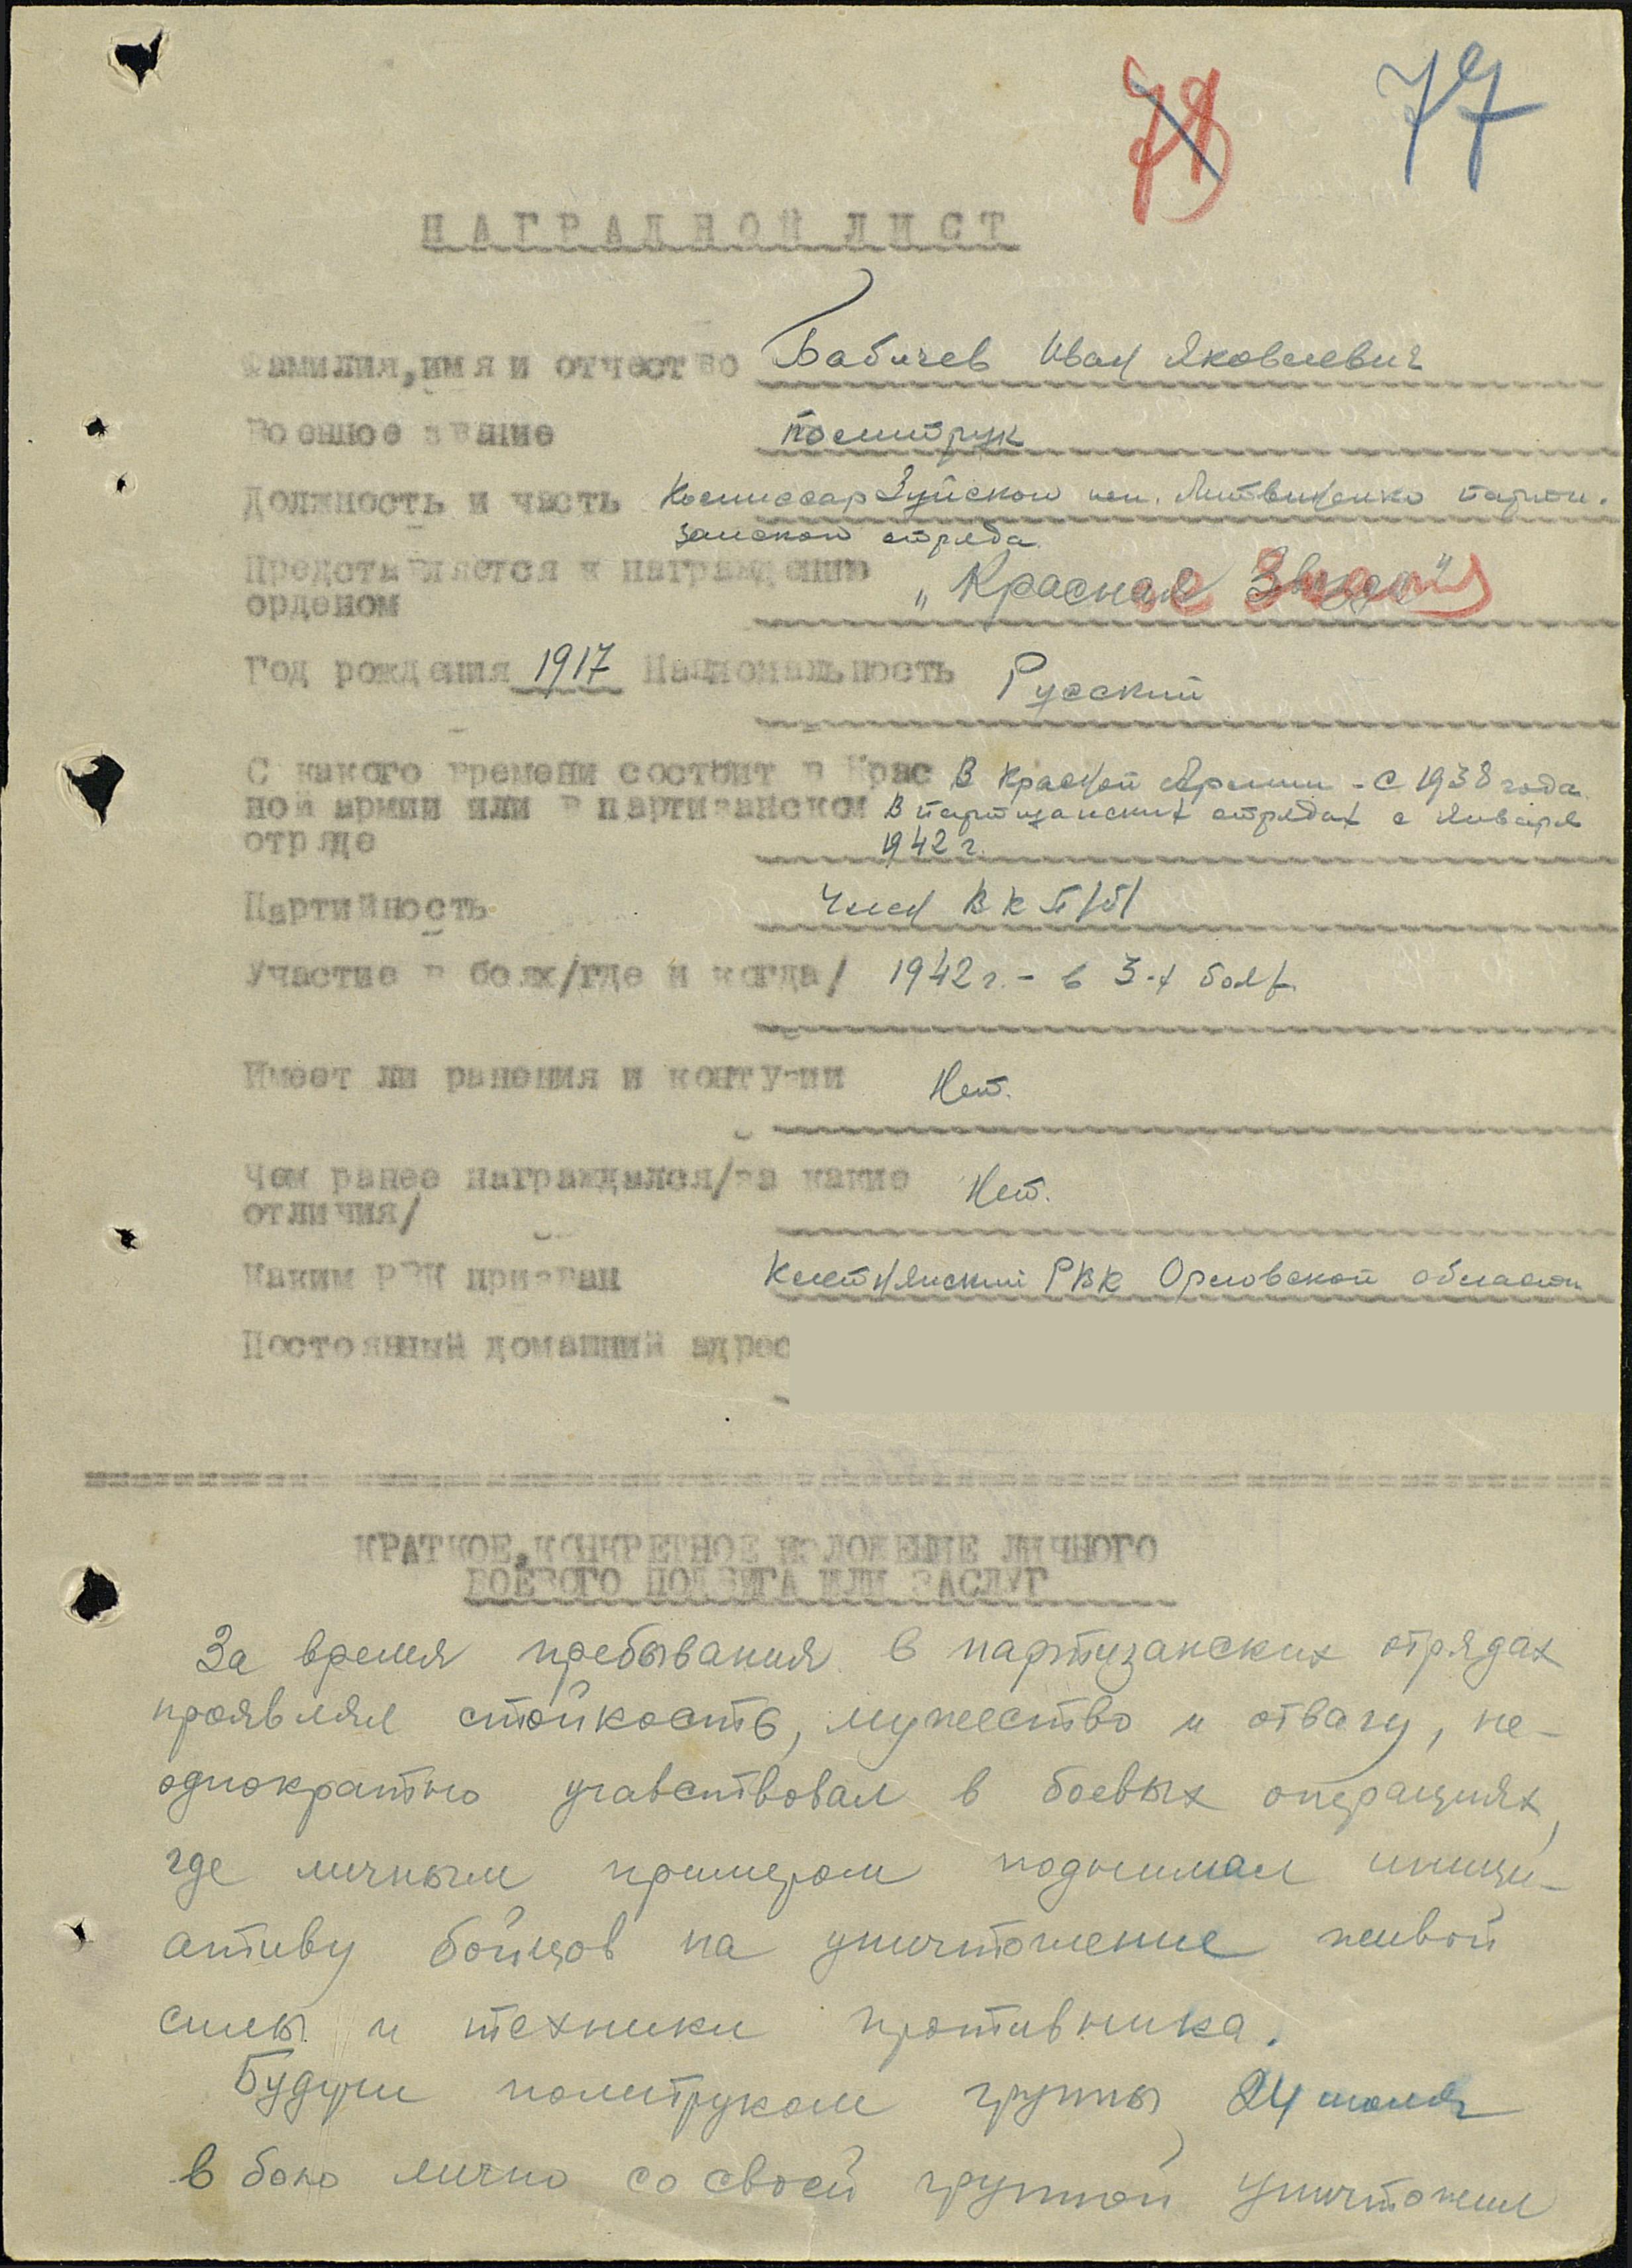 78 77
НАГРАДНОЙ ЛИСТ
Фамилия, имя и отчество Бабичев Иван Яковлевич
Военное звание политрук
Должность и часть Комиссар Зуйского им. Литвиненко парти-
занского отряда.
Представляется к награждению
орденом „Красная Звезда"
Год рождения 1917 Национальность Русский
С какого времени состоит в Крас В Красной Армии - с 1938 года
ной армии или в партизанском В партизанских отрядах с января
отряде 1942 г.
Партийность Член ВКП/б/
Участие в боях/где и когда/ 1942 г. - в 3-х боях.
Имеет ли ранения и контузии Нет.
Чем ранее награждался/за какие Нет.
отличия/
Каким РВК призван РВК Орловской области
Постоянный домашний адрес
КРАТКОЕ, КОНКРЕТНОЕ ИЗЛОЖЕНИЕ ЛИЧНОГО
БОЕВОГО ПОДВИГА ИЛИ ЗАСЛУГ
За время пребывания в партизанских отрядах
проявлял стойкость, мужество и отвагу, не-
однократно учавствовал в боевых операциях,
где личным примером поднимал иници-
ативу бойцов на уничтожение живой
силы и техники противника.
Будучи политруком группы, 24 июля
в бою лично со своей группой уничтожил